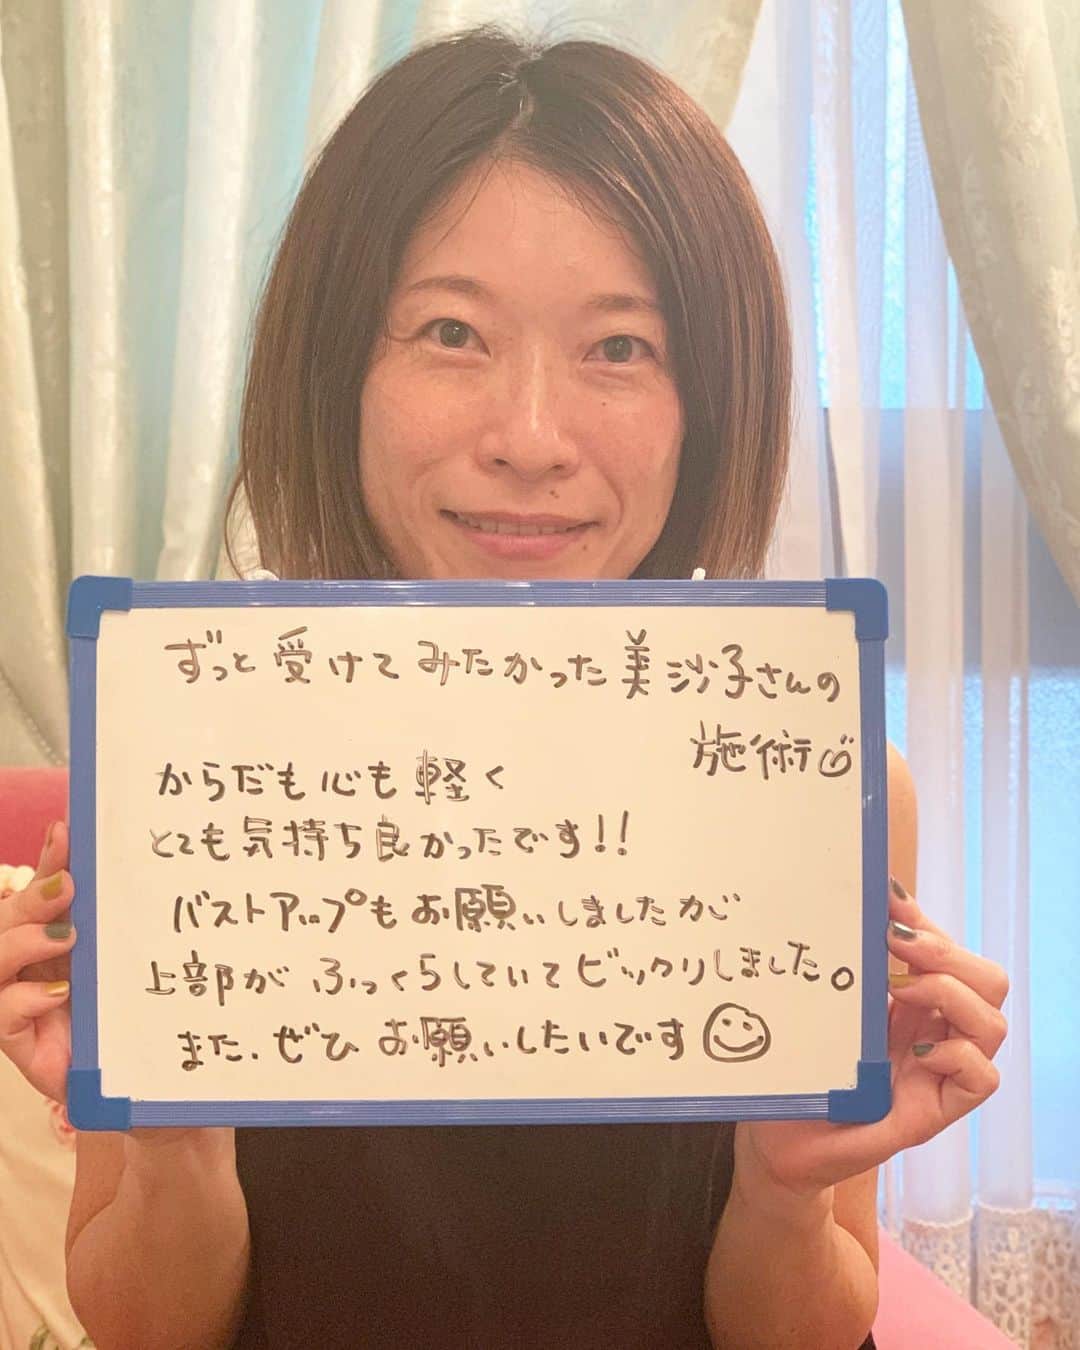 ずっと受けてみたかった美沙子さんの
施術
からだも心も軽く
とても気持ち良かったです!!
バストアップもお願いしましたが
上部がふっくらしていてビックリしました。
また、ぜひお願いしたいです